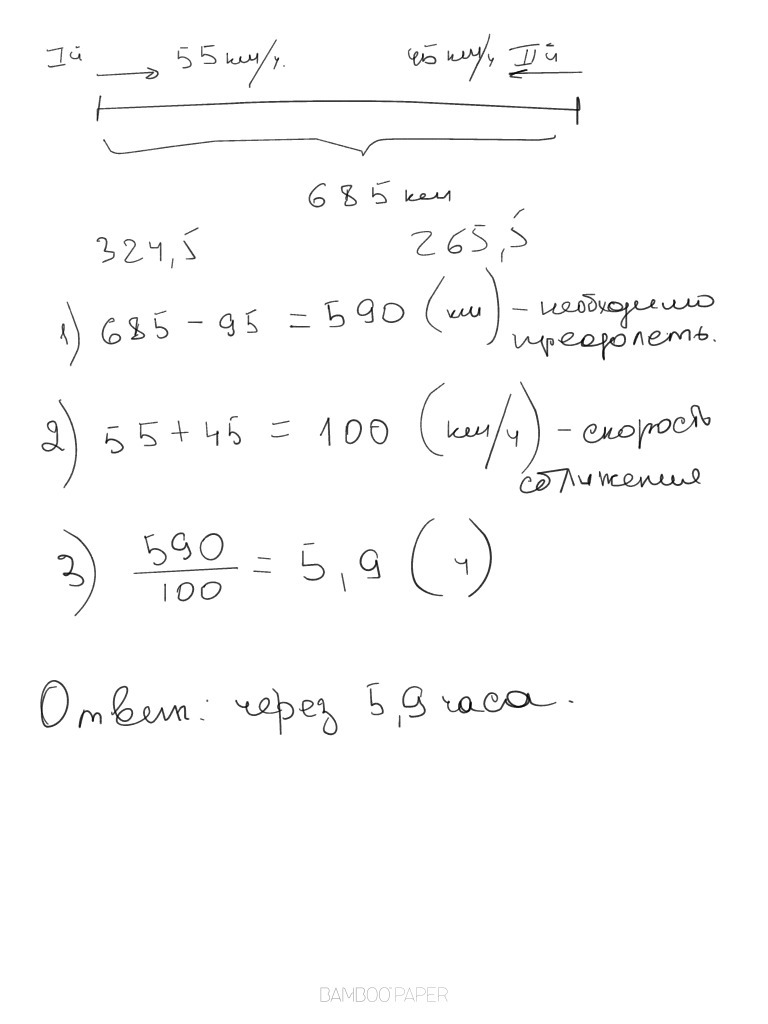 Iй 55 км/ч. 45 км/ч IIй
685 км
324,5 265,5
1) 685 - 95 = 590 (км) - необходимо
преодолеть.
2) 55 + 45 = 100 (км/ч) - скорость
сближения
3) 590/100 = 5,9 (ч)
Ответ: через 5,9 часа.
BAMBOO PAPER